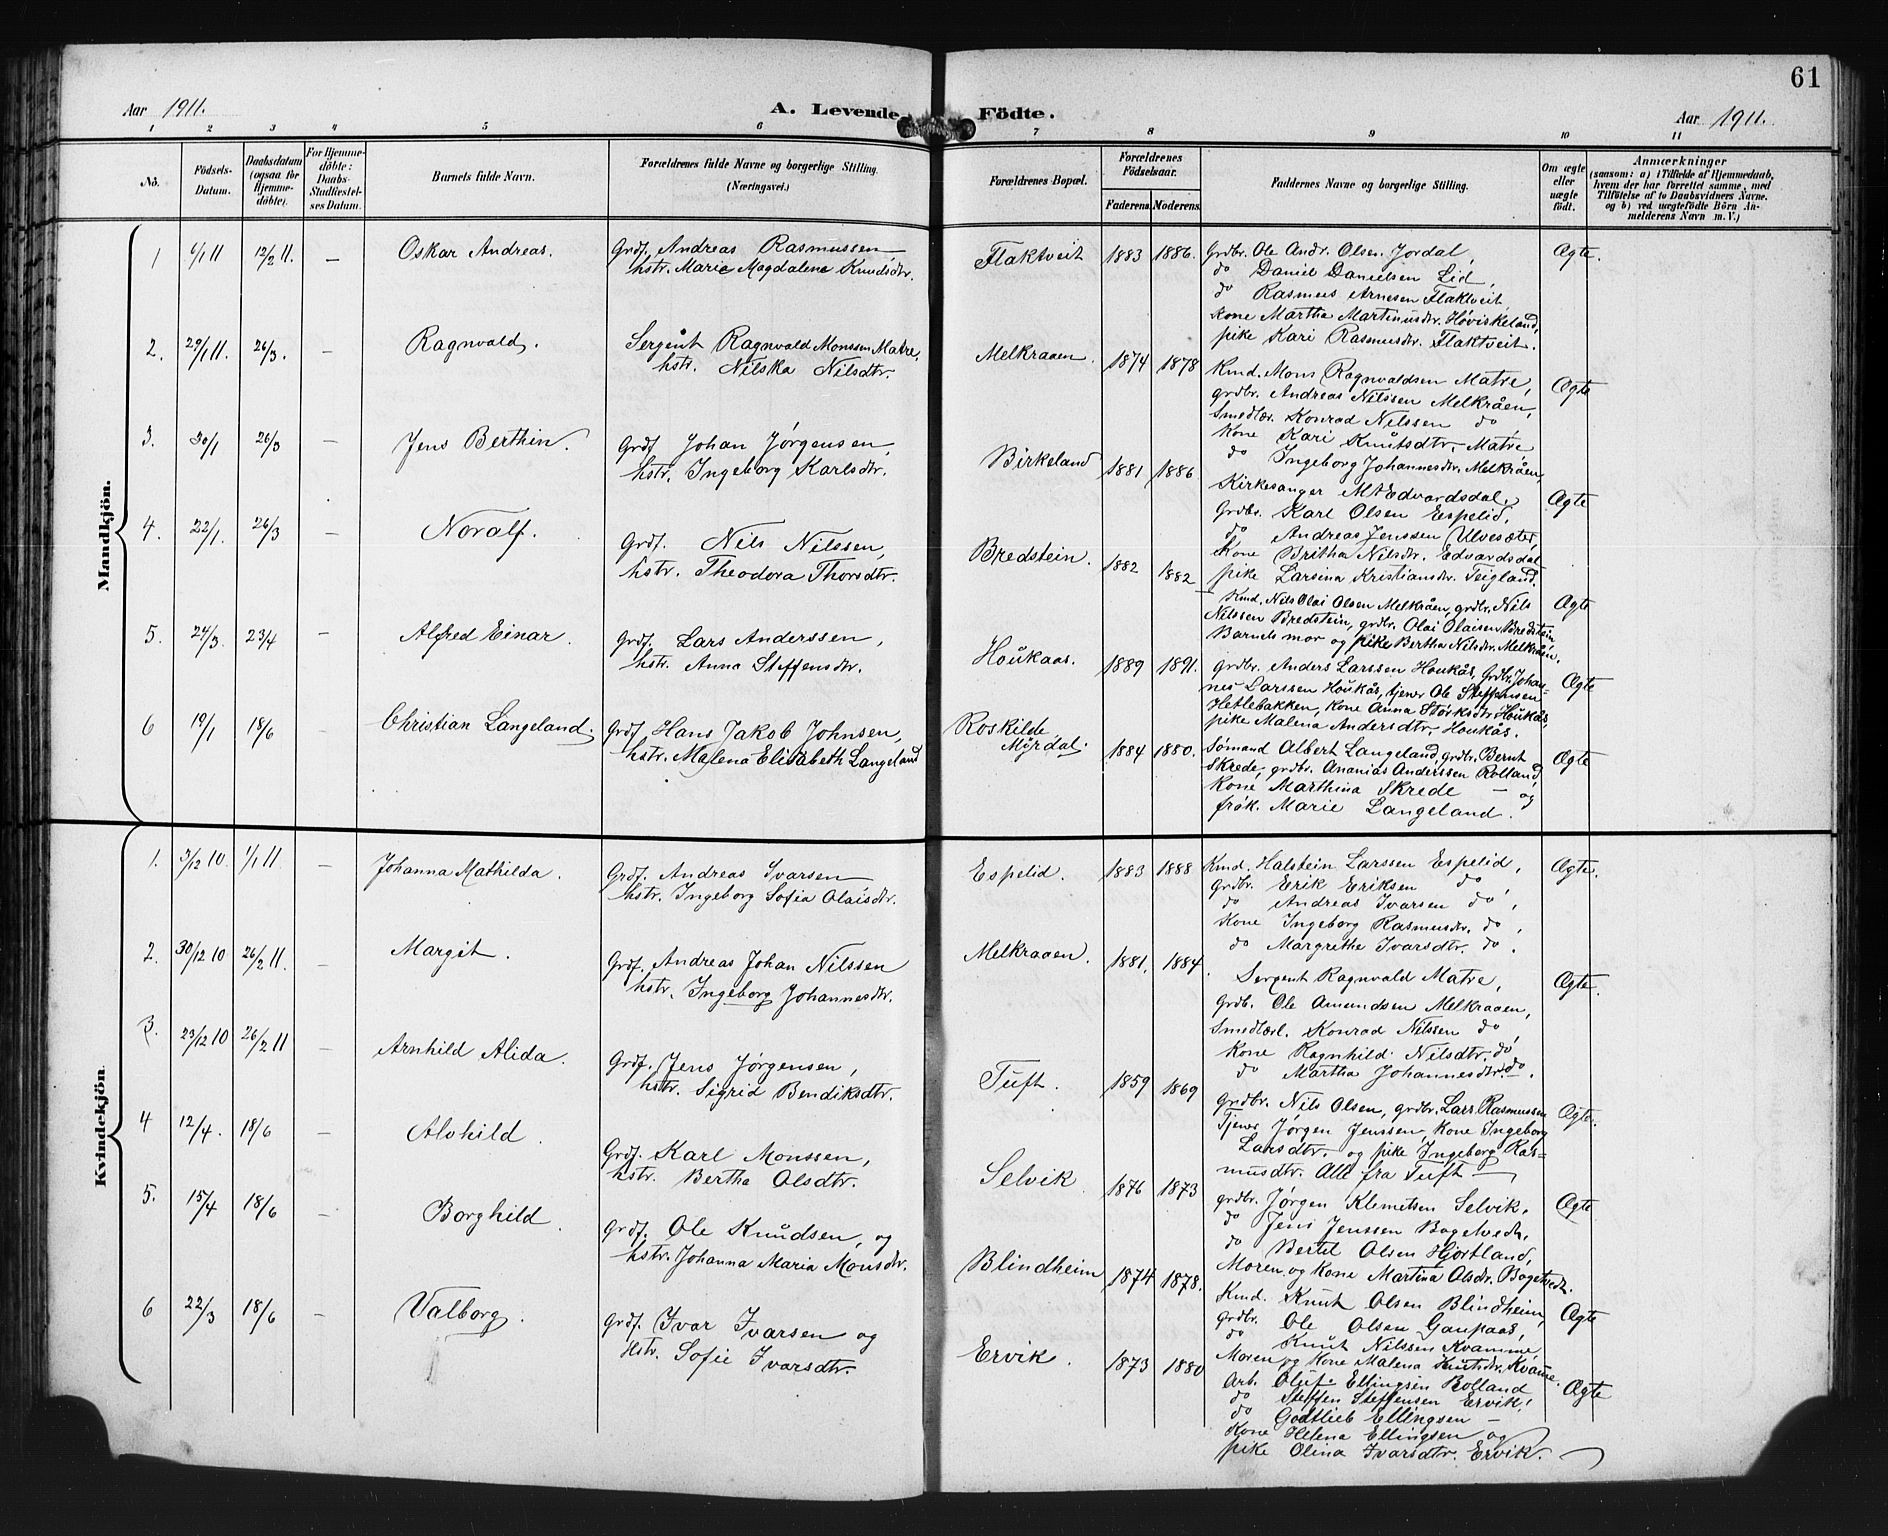 61
Aar 1911.
A. Levende Födte.
Aar 1911.
1 2 3 4 5 6 7 8 9 10 11
No. Födsels-Datum. Daabsdatum (ogsaa for Hjemmedöbte). For Hjemmedöbte: Daabs-Stadfæstelses Datum. Barnets fulde Navn. Forældrenes fulde Navne og borgerlige Stilling. (Næringsvei.) Forældrenes Bopæl. Forældrenes Födselsaar. Faderens. Moderens. Faddernes Navne og borgerlige Stilling. Om ægte eller uægte födt. Anmærkninger (saasom: a) i Tilfælde af Hjemmedaab, hvem der har forrettet samme, med Tilföielse af to Daabsvidners Navne. og b) ved uægtefödte Börn Anmelderens Navn m. V.)
Mandkjön.
1 6/1 11 12/2 11. — Oskar Andreas. Grdf. Andreas Rasmussen
hstr. Marie Magdalena Knudsdtr.
Flaktveit 1883 1886.
Grdbr. Ole Andr. Olsen Jordal,
do Daniel Danielsen Lid,
do Rasmus Arnesen Flaktveit
Kone Martha Martinusdtr. Høviskeland,
pike Kari Rasmusdtr. Flaktveit.
Ægte.
2. 29/1 11. 26/3. — Ragnvald. Sergånt Ragnvald Monssen Matre,
hstr. Nilska Nilsdtr.
Melkraaen. 1874 1878
Kmd. Mons Ragnvaldsen Matre,
grdbr. Andreas Nilssen Melkråen,
Smedlær. Konrad Nilssen do
Kone Kari Knutsdtr. Matre
do Ingeborg Johannesdtr. Melkråen,
Ægte
3. 30/1 26/3 — Jens Berthin. Grdf Johan Jørgensen,
hstr. Ingeborg Karlsdtr.
Birkeland 1881 1886
Kirkesanger M A Edvardsdal,
Grdbr. Karl Olsen Espelid,
do Andreas Jenssen Ulvesæter,
Kone Britha Nilsdtr. Edvardsdal
pike Larsina Kristiansdtr. Teigland.
Ægte
4. 22/1. 26/3 — Noralf. Grdf. Nils Nilssen,
hstr. Theodora Thorsdtr.
Bredstein. 1882 1882
Kmd. Nils Olai Olsen Melkråen, grdbr. Nils
Nilssen Bredstein, grdbr. Olai Olaisen Bredstein
Barnets mor og pike Bertha Nilsdtr. Melkråen.
Ægte
5. 24/3. 23/4 — Alfred Einar. Grdf. Lars Anderssen,
hstr. Anna Steffensdtr.
Houkaas. 1889 1891.
Grdbr. Anders Larssen Houkås, Grdbr. Johan-
nes Larssen Houkås, tjener Ole Steffensen
Hetlebakken, Kone Anna Størksdtr. Houkås,
pike Malena Andersdtr. Houkås.
Ægte
6 19/1 18/6 — Christian Langeland. Grdf Hans Jakob Johnsen,
hstr. Malena Elisabeth Langeland
Roskilde
Myrdal. 1884 1880.
Sømand Albert Langeland, grdbr. Bernt
Skrede, grdbr. Ananias Anderssen Rolland,
Kone Marthina Skrede — og
frøk. Marie Langeland.
Ægte
Kvindekjön
1. 3/12 10. 1/1 11 — Johanna Mathilda. Grdf. Andreas Ivarsen
hstr. Ingeborg Sofia Olaisdtr.
Espelid. 1883 1888
Kmd. Halstein Larssen Espelid,
grdbr. Erik Eriksen do,
do Andreas Ivarsen do,
Kone Ingeborg Rasmusdtr. do,
do Margrethe Ivarsdtr. do.
Ægte.
2. 30/12 10 26/2 11. — Margit. Grdf. Andreas Johan Nilssen
hstr. Ingeborg Johannesdtr.
Melkraaen. 1881. 1884.
Sergent Ragnvald Matre,
Grdb. Ole Amundsen Melkraaen,
Smedlærl. Konrad Nilssen do,
Kone Ragnhild Nilsdtr. do,
do Martha Johannesdtr. do.
Ægte.
3. 23/12 10 26/2 11 — Arnhild Alida. Grdf. Jens Jørgensen,
hstr. Sigrid Bendiksdtr.
Tuft. 1859 1869
Grdbr. Nils Olsen, grdbr. Lars Rasmussen
Tjener Jørgen Jenssen, Kone Ingeborg
Larsdtr. og pike Ingeborg Ras-
musdtr. Alle fra Tuft —
Ægte.
4 12/4. 18/6 — Alvhild. Grdf. Karl Monssen,
hstr. Bertha Olsdtr.
Selvik 1876 1873
grdbr. Jørgen Klemetsen Selvik,
do Jens Jenssen Bogetvedt,
do Bertel Olsen Hjortland,
Moren og Kone Martina Olsdr. Bogetvedt.
Ægte
5. 15/4 18/6 — Borghild. Grdf. Ole Knudsen, og
hstr. Johanna Maria Monsdtr.
Blindheim 1874 1878.
Kmd. Knut Olsen Blindheim,
grdbr. Ole Olsen Gaupaas,
do Knut Nilssen Kvamme,
Moren og Kone Malena Knutsdtr. Kvamme.
Ægte
6 22/3 18/6 — Valborg. Grdf. Ivar Ivarsen og
Hstr. Sofie Ivarsdtr.
Ervik. 1873 1880
Arb. Oluf Ellingsen Rolland
do Steffen Steffensen Ervik,
do Godtlieb Ellingsen —
Kone Helena Ellingsen og
pike Olina Ivarsdtr. Ervik.
Ægte